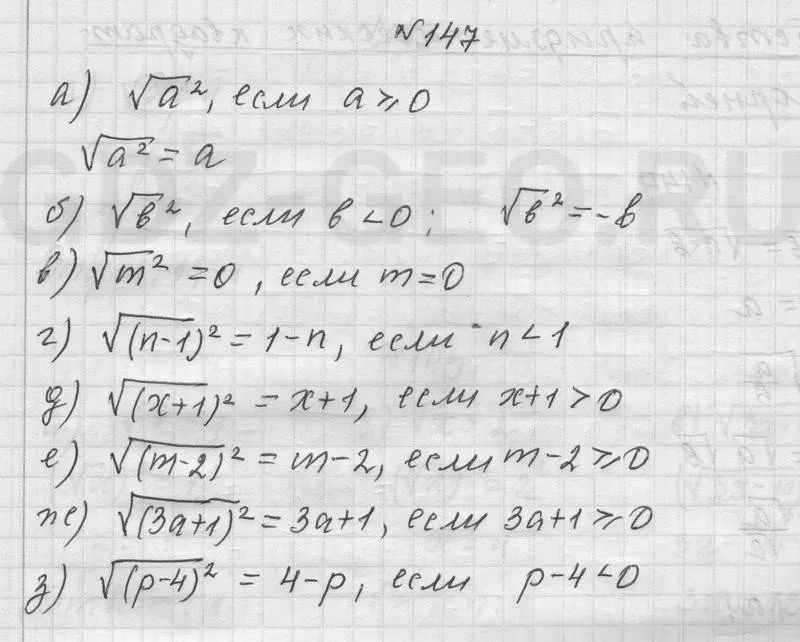 №147
а) √a², если a ⩾ 0
√a² = a
б) √в², если в < 0; √в² = -в
в) √m² = 0, если m = 0
г) √(n-1)² = 1-n, если n < 1
д) √(x+1)² = x+1, если x+1 > 0
е) √(m-2)² = m-2, если m-2 ⩾ 0
ж) √(3a+1)² = 3a+1, если 3a+1 ⩾ 0
з) √(p-4)² = 4-p, если p-4 < 0
GDZ-GEO.RU